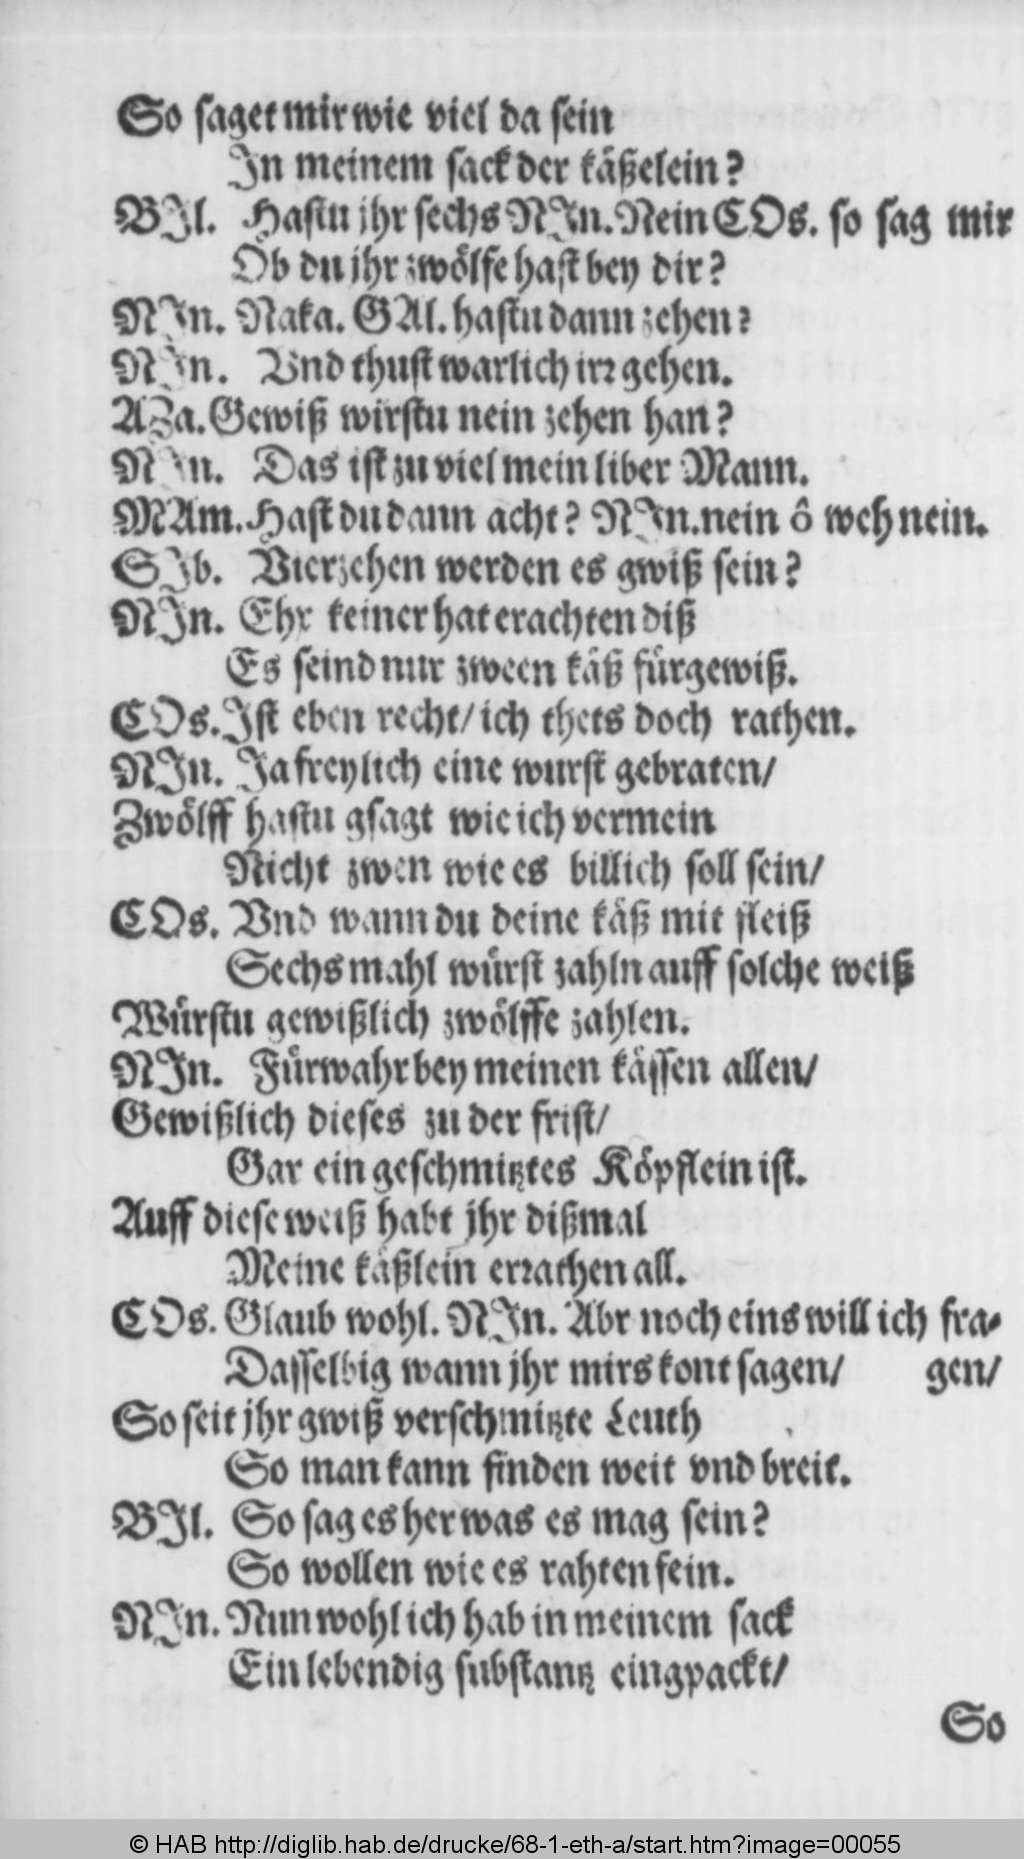 So saget mir wie viel da sein
In meinem sack der käßelein?
BIl. Hastu jhr sechs NIn. Nein COs. so sag mir
Ob du jhr zwölfe hast bey dir?
NIn. Naka. GAl. hastu dann zehen?
NIn. Vnd thust warlich irr gehen.
AZa. Gewiß wirstu nein zehen han?
NIn. Das ist zu viel mein liber Mann.
MAm. Hast du dann acht? NIn. nein ô weh nein.
SIb. Vierzehen werden es gwiß sein?
NIn. Ehr keiner hat erachten diß
Es seind nur zween käß fürgewiß.
COs. Ist eben recht/ ich thets doch rathen.
NIn. Ja freylich eine wurst gebraten/
Zwölff hastu gsagt wie ich vermein
Nicht zwen wie es billich soll sein/
COs. Vnd wann du deine käß mit fleiß
Sechs mahl würst zahln auff solche weiß
Würstu gewißlich zwölffe zahlen.
NIn. Fürwahr bey meinen kässen allen/
Gewißlich dieses zu der frist/
Gar ein geschmitztes Köpflein ist.
Auff diese weiß habt jhr dißmal
Meine käßlein errathen all.
COs. Glaub wohl. NIn. Abr noch eins will ich fra-
Dasselbig wann jhr mirs kont sagen/ gen/
So seit jhr gwiß verschmitzte Leuth
So man kann finden weit vnd breit.
BIl. So sag es her was es mag sein?
So wollen wie es rahten fein.
NIn. Nun wohl ich hab in meinem sack
Ein lebendig substantz eingpackt/
So
© HAB http://diglib.hab.de/drucke/68-1-eth-a/start.htm?image=00055